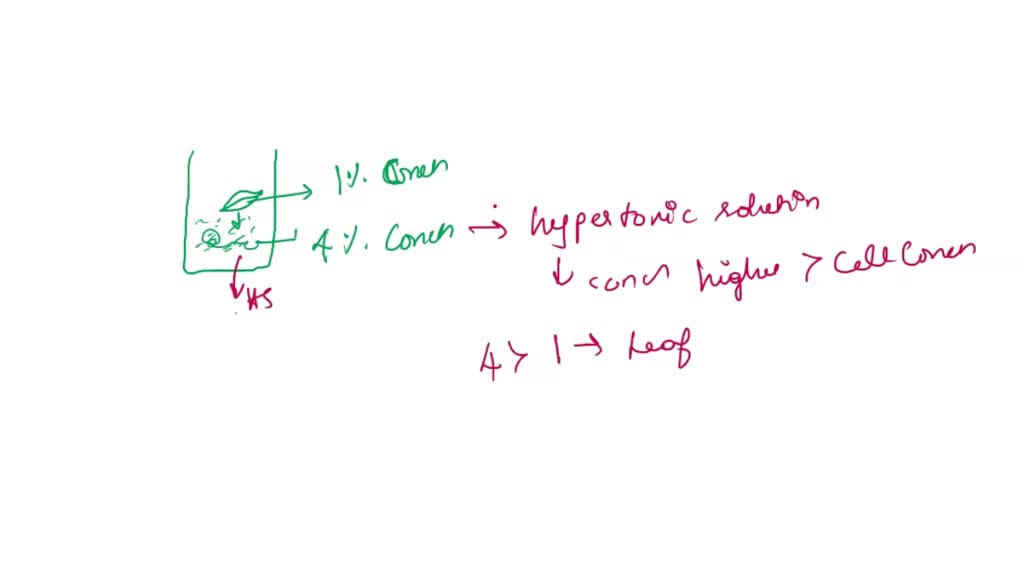 1%. Concn
4%. Concn → hypertonic solution
↓ concn higher > Cell Concn
↓ HS
4 > 1 → Leaf